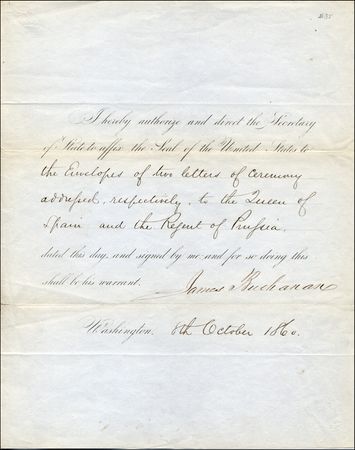 I hereby authorize and direct the Secretary
of State to affix the Seal of the United States to
the Envelopes of two letters of Ceremony
addressed, respectively, to the Queen of
Spain and the Regent of Prussia,
dated this day, and signed by me, and for so doing this
shall be his warrant.
James Buchanan
Washington, 8th October 1860.